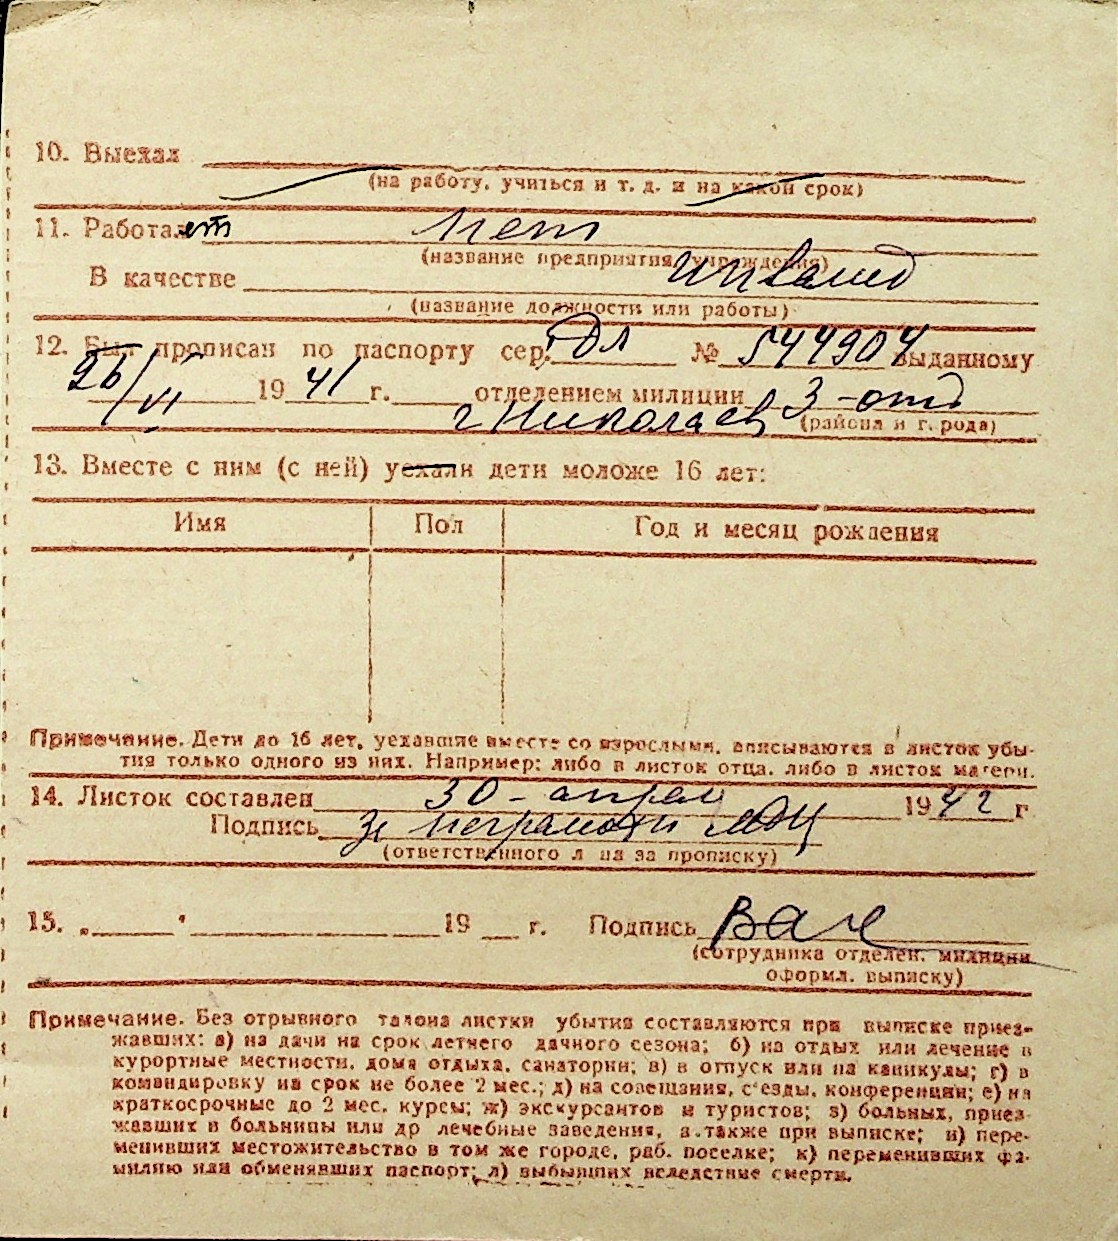 10. Выехал
(на работу, учиться и т. д. и на какой срок)
11. Работает нет
(название предприятия, учреждения)
В качестве инвалид
(название должности или работы)
12. Был прописан по паспорту сер. № 544904 выданному
26/VI 1941 г. отделением милиции 3-отд
г Николаев (района и г. рода)
13. Вместе с ним (с ней) уехали дети моложе 16 лет:
Имя Пол Год и месяц рождения
Примечание. Дети до 16 лет, уехавшие вместе со взрослыми, вписываются в листок убы-
тия только одного из них. Например: либо в листок отца, либо в листок матери.
14. Листок составлен 30-апрел 1942 г
Подпись за неграмотн
(ответственного л на за прописку)
15. „ " 19 г. Подпись
(сотрудника отделен. милиции
оформл. выписку)
Примечание. Без отрывного талона листки убытия составляются при выписке приез-
жавших: а) на дачи на срок летнего дачного сезона; б) на отдых или лечение в
курортные местности, дома отдыха, санатории; в) в отпуск или на каникулы; г) в
командировку на срок не более 2 мес.; д) на совещания, с'езды, конференции; е) на
краткосрочные до 2 мес. курсы; ж) экскурсантов и туристов; з) больных, приез-
жавших в больницы или др лечебные заведения, а также при выписке; и) пере-
менивших местожительство в том же городе, раб. поселке; к) переменивших фа-
милию или обменявших паспорт; л) выбывших вследствие смерти.